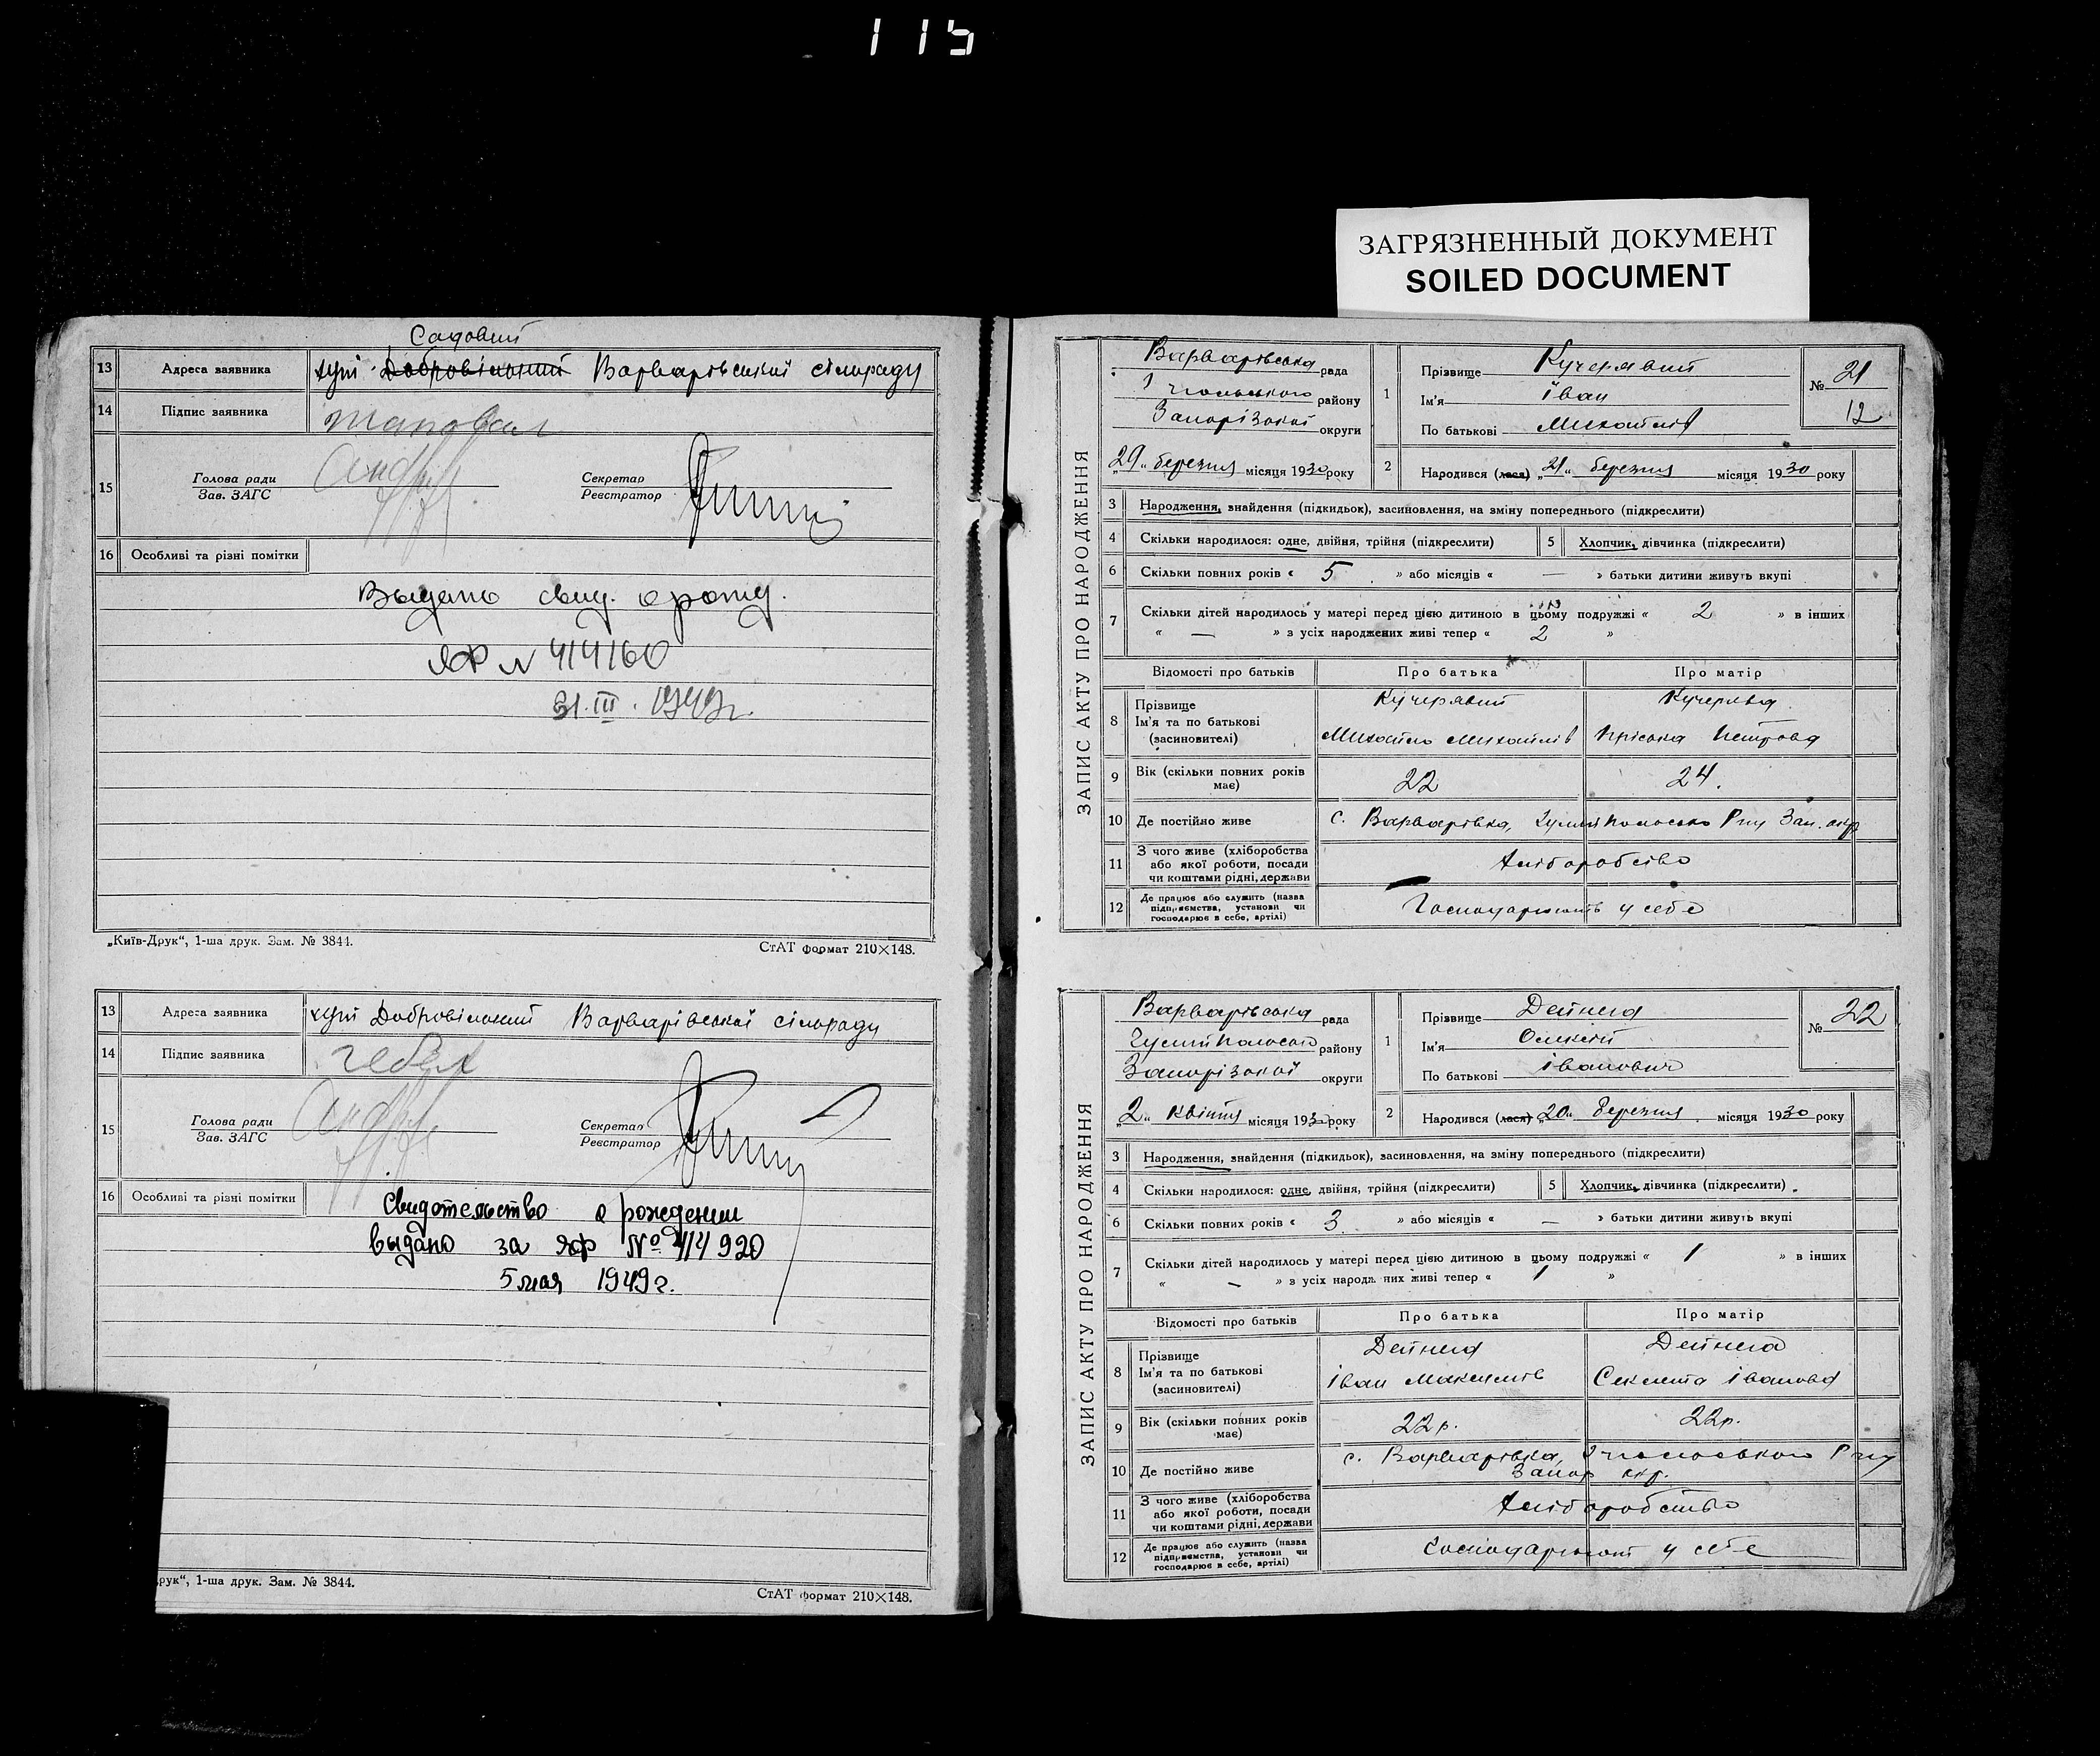 115
ЗАГРЯЗНЕННЫЙ ДОКУМЕНТ
SOILED DOCUMENT
Садовий
13 Адреса заявника хут. Добровільний Варварівської сільради
14 Підпис заявника
15 Голова ради
Зав. ЗАГС
Секретар
Реєстратор
16 Особливі та різні помітки
Выдано свид. о рожд.
ЯФ № 414160
31.III.1949г.
„Київ-Друк“, 1-ша друк. Зам. № 3844. СтАТ формат 210×148.
13 Адреса заявника хут Добровільний Варварівської сільради
14 Підпис заявника
15 Голова ради
Зав. ЗАГС
Секретар
Реєстратор
16 Особливі та різні помітки
Свидетельство о рождении
выдано за ЯФ № 414920
5 мая 1949 г.
рук“, 1-ша друк. Зам. № 3844. СтАТ формат 210×148.
ЗАПИС АКТУ ПРО НАРОДЖЕННЯ
Варварівська рада
району
Запорізької округи
„29“ березня місяця 1930 року
1 Прізвище Кучерявий
Ім'я Іван
По батькові Михайлів
№ 21
12
2 Народився (лася) „21“ березня місяця 1930 року
3 Народження, знайдення (підкидьок), засиновлення, на зміну попереднього (підкреслити)
4 Скільки народилося: одне, двійня, трійня (підкреслити) 5 Хлопчик, дівчинка (підкреслити)
6 Скільки повних років « 5 » або місяців « — » батьки дитини живуть вкупі
7 Скільки дітей народилось у матері перед цією дитиною в цьому подружжі « 2 » в інших
« — » з усіх народжених живі тепер « 2 »
Відомості про батьків Про батька Про матір
8 Прізвище Кучерявий Кучерява
Ім'я та по батькові
(засиновителі) Михайло Михайлів Пріська Петрова
9 Вік (скільки повних років має) 22 24.
10 Де постійно живе с. Варварівка, Гуляйпольсько Р-ну Зап. окр
11 З чого живе (хліборобства
або якої роботи, посади
чи коштами рідні, держави Хліборобство
12 Де працює або служить (назва
підприємства, установи чи
господарює в себе, артілі) Господарюють у себе
ЗАПИС АКТУ ПРО НАРОДЖЕННЯ
Варварівська рада
Гуляйпольсько району
Запорізької округи
„2“ квітня місяця 1930 року
1 Прізвище Дейнега
Ім'я Олексій
По батькові Іванович
№ 22
2 Народився (лася) „20“ березня місяця 1930 року
3 Народження, знайдення (підкидьок), засиновлення, на зміну попереднього (підкреслити)
4 Скільки народилося: одне, двійня, трійня (підкреслити) 5 Хлопчик, дівчинка (підкреслити)
6 Скільки повних років « 3 » або місяців « — » батьки дитини живуть вкупі
7 Скільки дітей народилось у матері перед цією дитиною в цьому подружжі « 1 » в інших
« — » з усіх народж них живі тепер « 1 »
Відомості про батьків Про батька Про матір
8 Прізвище Дейнега Дейнега
Ім'я та по батькові
(засиновителі) Іван Максимів Секлета Іванова
9 Вік (скільки повних років має) 22 р. 22 р.
10 Де постійно живе с. Варварівка, Р-ну
Запор окр.
11 З чого живе (хліборобства
або якої роботи, посади
чи коштами рідні, держави Хліборобство
12 Де працює або служить (назва
підприємства, установи чи
господарює в себе, артілі) Господарюют у себе